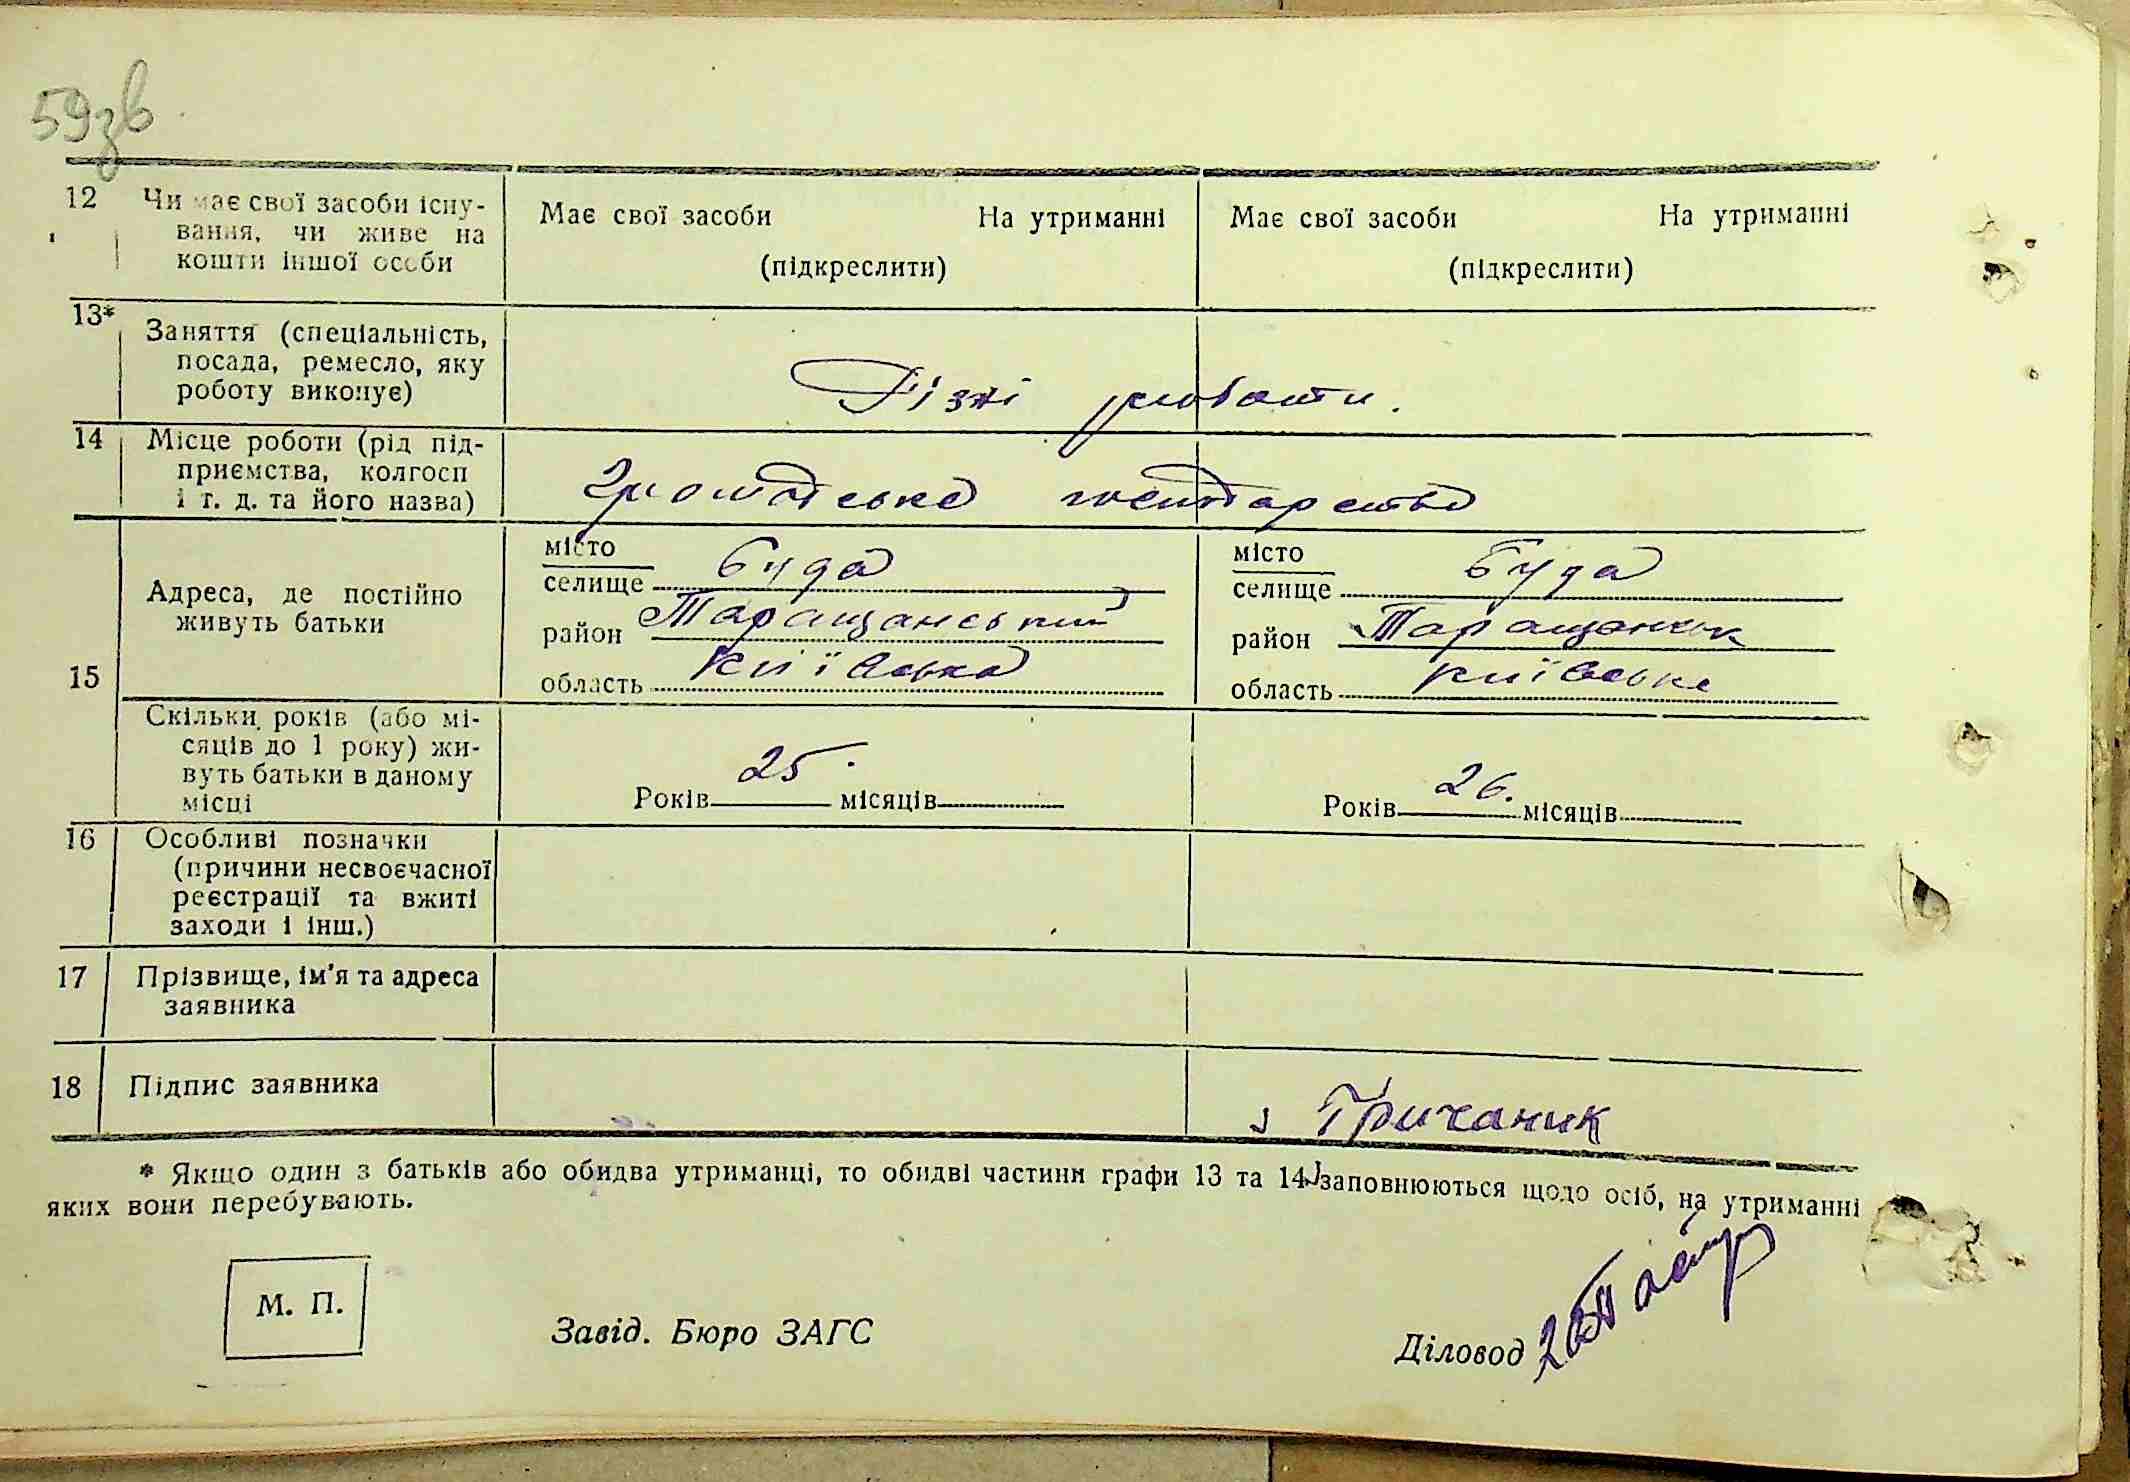 59зв
12 Чи має свої засоби існу-
вання, чи живе на
кошти іншої особи
Має свої засоби На утриманні
(підкреслити)
Має свої засоби На утриманні
(підкреслити)
13* Заняття (спеціальність,
посада, ремесло, яку
роботу виконує)
Різні роботи.
14 Місце роботи (рід під-
приємства, колгосп
і т. д. та його назва)
Громадське господарство
15
Адреса, де постійно
живуть батьки
місто
селище Буда
район Таращанський
область Київська
місто
селище Буда
район
область Київська
Скільки років (або мі-
сяців до 1 року) жи-
вуть батьки в даному
місці
Років 25. місяців
Років 26. місяців
16 Особливі позначки
(причини несвоєчасної
реєстрації та вжиті
заходи і інш.)
17 Прізвище, ім'я та адреса
заявника
18 Підпис заявника
Гричаник
* Якщо один з батьків або обидва утриманці, то обидві частини графи 13 та 14 заповнюються щодо осіб, на утриманні
яких вони перебувають.
М. П.
Завід. Бюро ЗАГС
Діловод